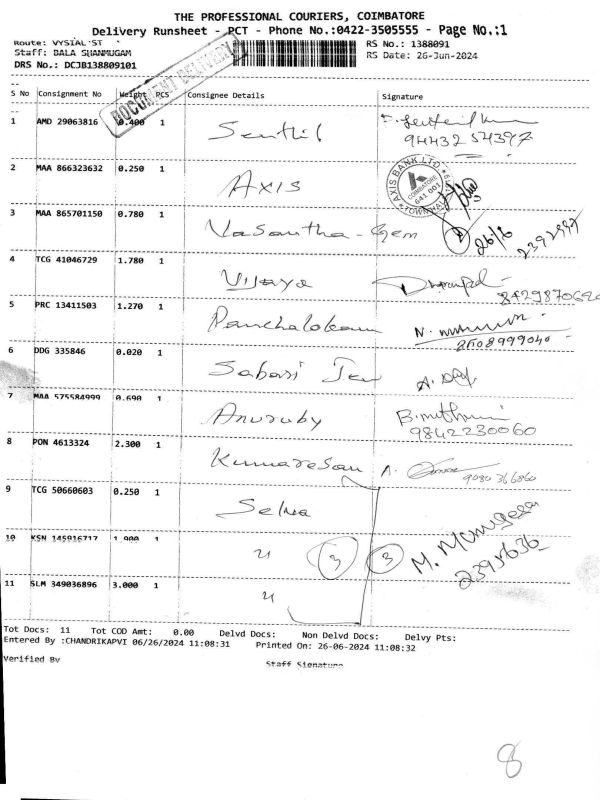 THE PROFESSIONAL COURIERS, COIMBATORE
Delivery Runsheet - PCT - Phone No.:0422-3505555 - Page No.:1
Route: VYSIAL ST
Staff: BALA SHANMUGAM
DRS No.: DCJB138809101
RS No.: 1388091
RS Date: 26-Jun-2024
DOCUMENT DELIVERY
S No Consignment No Weight PCS Consignee Details Signature
1 AMD 29063816 0.400 1 Senthil
9443254397
2 MAA 866323632 0.250 1 Axis
AXIS BANK LTD.
COIMBATORE
641 001
3 MAA 865701150 0.780 1 Vasantha-Gem
26/6
4 TCG 41046729 1.780 1 Vijaya
5 PRC 13411503 1.270 1
6 DDG 335846 0.020 1 Sabari
7 MAA 575584999 0.690 1 Anuruby
9842230060
8 PON 4613324 2.300 1 Kumaresan A.
9080366860
9 TCG 50660603 0.250 1 Selva
10 KSN 145916717 1.900 1 " 3 3
11 SLM 349036896 3.000 1 "
Tot Docs: 11 Tot COD Amt: 0.00 Delvd Docs: Non Delvd Docs: Delvy Pts:
Entered By :CHANDRIKAPVI 06/26/2024 11:08:31 Printed On: 26-06-2024 11:08:32
Verified By Staff Signature
8